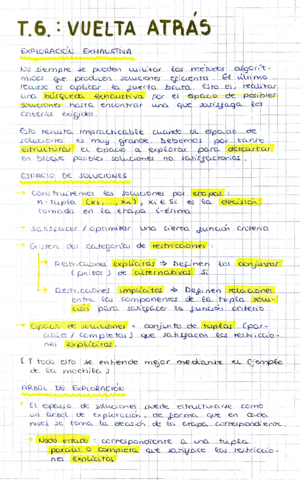 T.6.: VUELTA ATRÁS
EXPLORACIÓN EXHAUSTIVA
No siempre se pueden utilizar los métodos algorít-
micos que producen soluciones eficiente. El último
recurso es aplicar la fuerza bruta. Esto es, realizar
una búsqueda exhaustiva por el espacio de posibles
soluciones hasta encontrar una que satisfaga los
criterios exigidos.
Esto resulta impracticable cuando el espacio de
soluciones es muy grande. Debemos por tanto
estructurar el espacio a explorar para descartar
en bloque posibles soluciones no satisfactorias.
ESPACIO DE SOLUCIONES
→ Construiremos las soluciones por etapas:
n-tupla (x₁, ..., xₙ), xi ∈ Si es la decisión
tomada en la etapa i-ésima
→ Satisfacer / optimizar una cierta función criterio
→ Existen dos categorías de restricciones:
→ Restricciones explícitas ⇒ Definen los conjuntos
(finitos) de alternativas Si
→ Restricciones implícitas ⇒ Definen relaciones
entre las componentes de la tupla solu-
ción para satisfacer la función criterio
→ Espacio de soluciones = conjunto de tuplas (par-
ciales / completas) que satisfacen las restriccio-
nes explícitas.
( ↑ todo esto se entiende mejor mediante el ejemplo
de la mochila )
ÁRBOL DE EXPLORACIÓN
→ El espacio de soluciones puede estructurarse como
un árbol de exploración, de forma que en cada
nivel se toma la decisión de la etapa correspondiente.
→ Nodo estado: correspondiente a una tupla
parcial o completa que satisface las restriccio-
nes explícitas